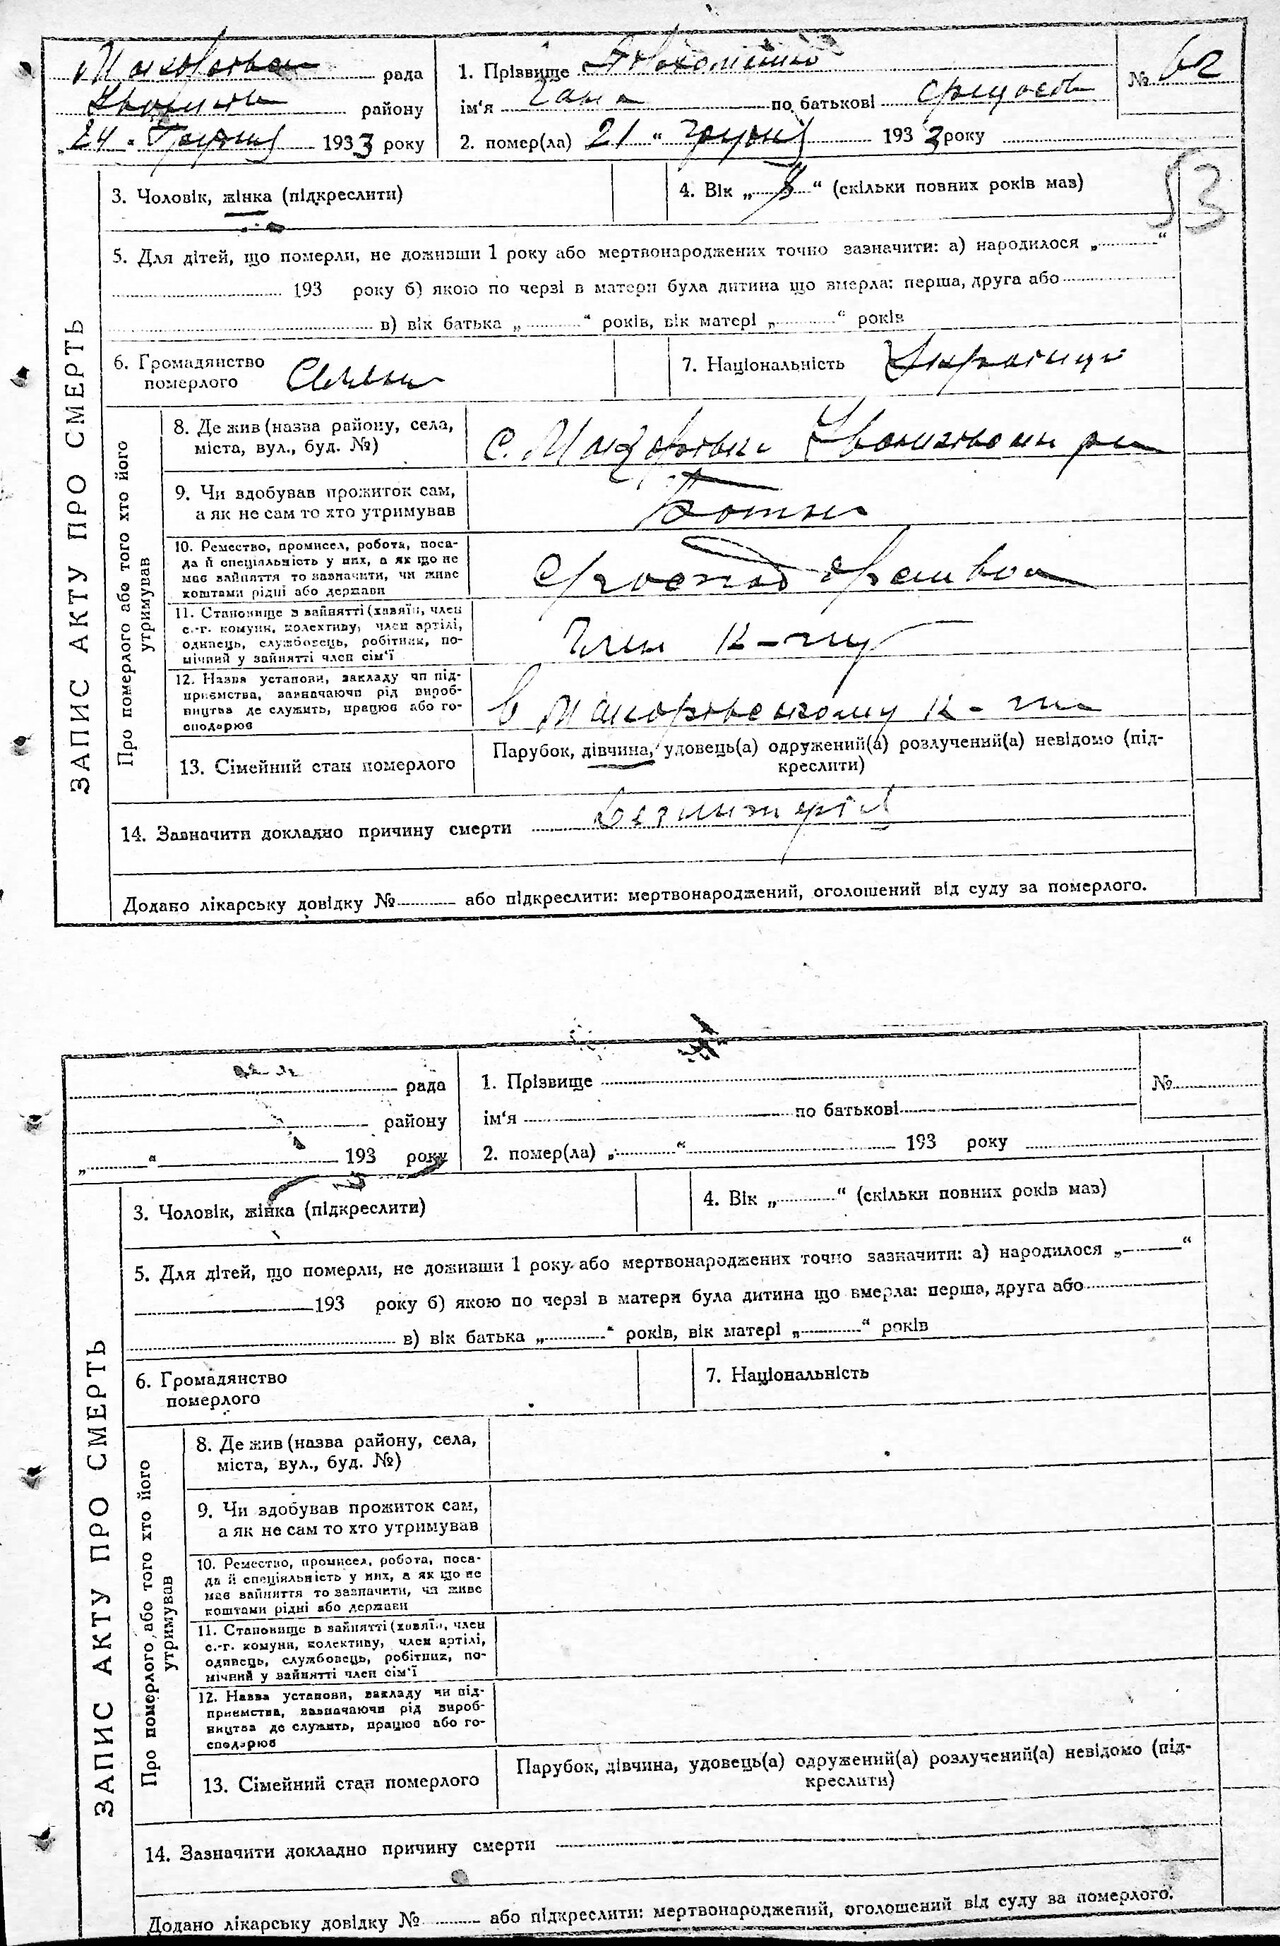 рада
району
24 Грудня 1933 року
1. Прізвище
ім'я Гана по батькові
2. помер(ла) 21 " грудня 1933 року
№ 62
53
3. Чоловік, жінка (підкреслити)
4. Вік „ 8 “ (скільки повних років мав)
5. Для дітей, що померли, не доживши 1 року або мертвонароджених точно зазначити: а) народилося „ “
193 року б) якою по черзі в матери була дитина що вмерла: перша, друга або
в) вік батька „ “ років, вік матері „ “ років
6. Громадянство
померлого
7. Національність
ЗАПИС АКТУ ПРО СМЕРТЬ
Про померлого або того хто його
утримував
8. Де жив (назва району, села,
міста, вул., буд. №)
с.
9. Чи вдобував прожиток сам,
а як не сам то хто утримував
Батько
10. Ремество, промисел, робота, поса-
да й спеціяльність у них, а як що не
має вайняття то зазначити, чи живе
коштами рідні або держави
11. Становище в вайнятті (хазяїн, член
с.-г. комуни, колективу, член артілі,
одинець, службовець, робітник, по-
мічний у зайнятті член сім'ї
Член К-пу
12. Назва установи, закладу чи під-
приємства, зазначаючи рід вироб-
ництва де служить, працює або го-
сподарює
в
13. Сімейний стан померлого
Парубок, дівчина, удовець(а) одружений(а) розлучений(а) невідомо (під-
креслити)
14. Зазначити докладно причину смерти
Додано лікарську довідку № або підкреслити: мертвонароджений, оголошений від суду за померлого.
рада
району
„ “ 193 року
1. Прізвище
ім'я по батькові
2. помер(ла) „ “ 193 року
№
3. Чоловік, жінка (підкреслити)
4. Вік „ “ (скільки повних років мав)
5. Для дітей, що померли, не доживши 1 року або мертвонароджених точно зазначити: а) народилося „ “
193 року б) якою по черзі в матери була дитина що вмерла: перша, друга або
в) вік батька „ “ років, вік матері „ “ років
6. Громадянство
померлого
7. Національність
ЗАПИС АКТУ ПРО СМЕРТЬ
Про померлого або того хто його
утримував
8. Де жив (назва району, села,
міста, вул., буд. №)
9. Чи здобував прожиток сам,
а як не сам то хто утримував
10. Ремество, промисел, робота, поса-
да й спеціяльність у них, а як що не
має вайняття то зазначити, чи живе
коштами рідні або держави
11. Становище в вайнятті (хазяїн, член
с.-г. комуни, колективу, член артілі,
одинець, службовець, робітник, по-
мічний у вайнятті член сім'ї
12. Назва установи, закладу чи під-
приємства, зазначаючи рід вироб-
ництва де служить, працює або го-
сподарює
13. Сімейний стан померлого
Парубок, дівчина, удовець(а) одружений(а) розлучений(а) невідомо (під-
креслити)
14. Зазначити докладно причину смерти
Додано лікарську довідку № або підкреслити: мертвонароджений, оголошений від суду за померлого.